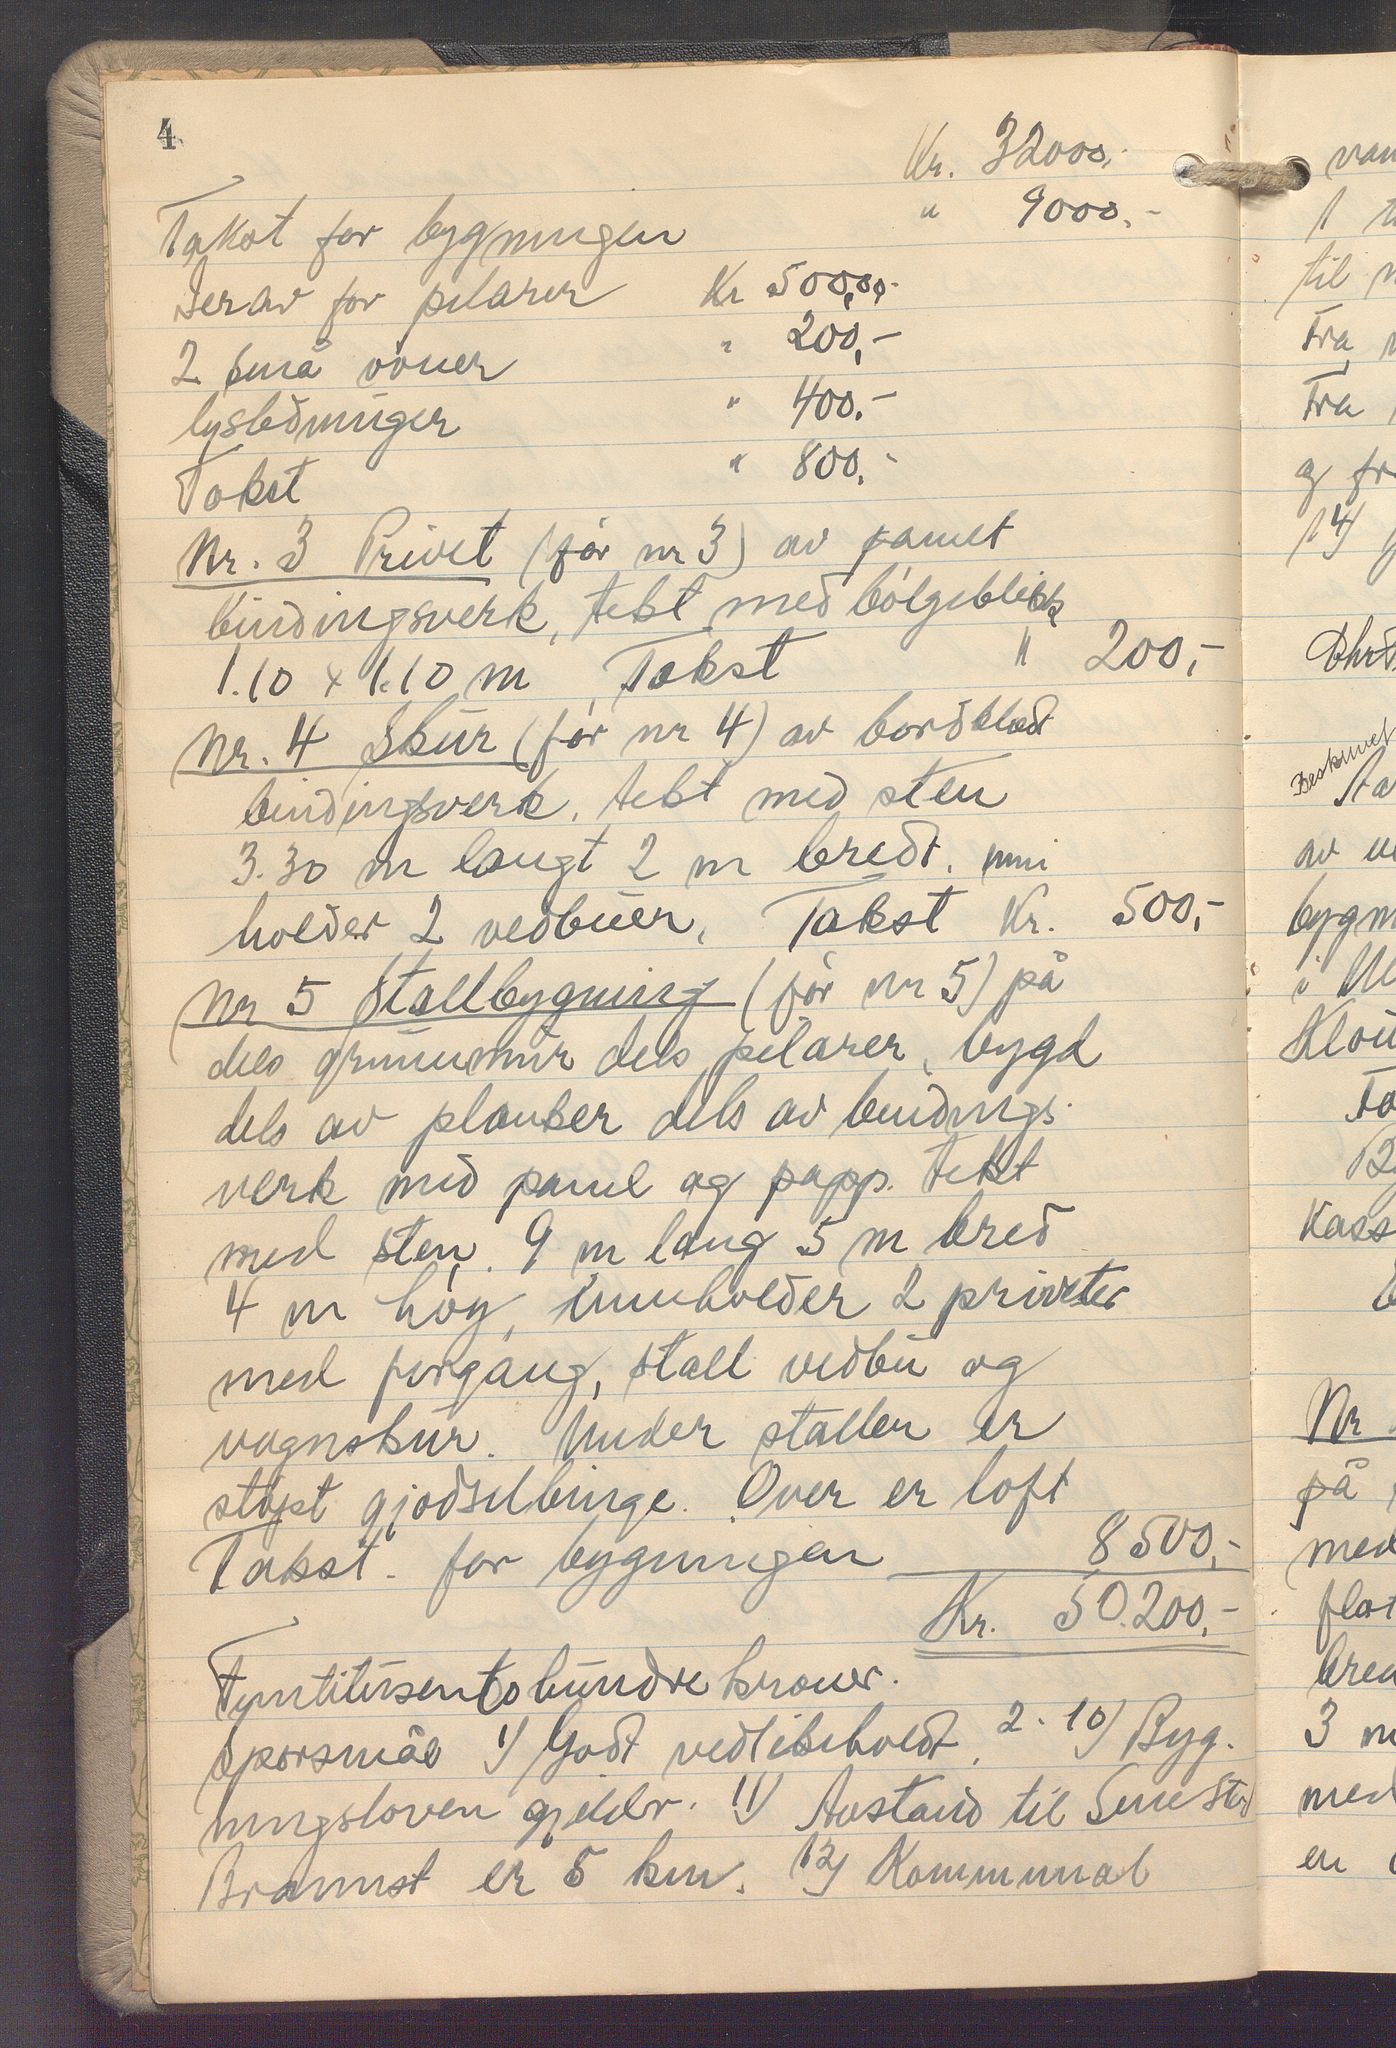 4.
Kr. 32000,-
Takst for bygningen " 9000,-
Derav for pilarer Kr 500,00
2 små ovner " 200,-
lysledninger " 400.-
Takst " 800,-
Nr. 3 Privet (før nr 3) av panelt
bindingsverk, tekt med bølgeblikk
1.10 x 1.10 m, Takst " 200,-
Nr. 4 Skur (før nr 4) av bordklædt
bindingsverk, tekt med sten
3.30 m langt 2 m bredt. inni
holder 2 vedbuer, Takst Kr. 500,-
Nr 5 Stallbygning (før nr 5) på
dels grunnmur dels pilarer, bygd
dels av planker dels av bindings
verk med panel og papp. tekt
med sten. 9 m lang 5 m bred
4 m høy, innholder 2 priveter
med forgang, stall vedbu og
vognskur. Under stallen er
støpt gjødselbinge. Over er loft
Takst. for bygningen 8500,-
Kr. 50.200,-
Femtitusentohundre kroner.
Spørsmål 1) Godt vedlikeholdt. 2-10) Byg-
ningsloven gjelder. 11) Avstand til
Brannst er 5 km. 12) Kommunal
van
til
Fra
Fra
14)
Beskrevet
av
i
Nr
på
med
3 m
med
en